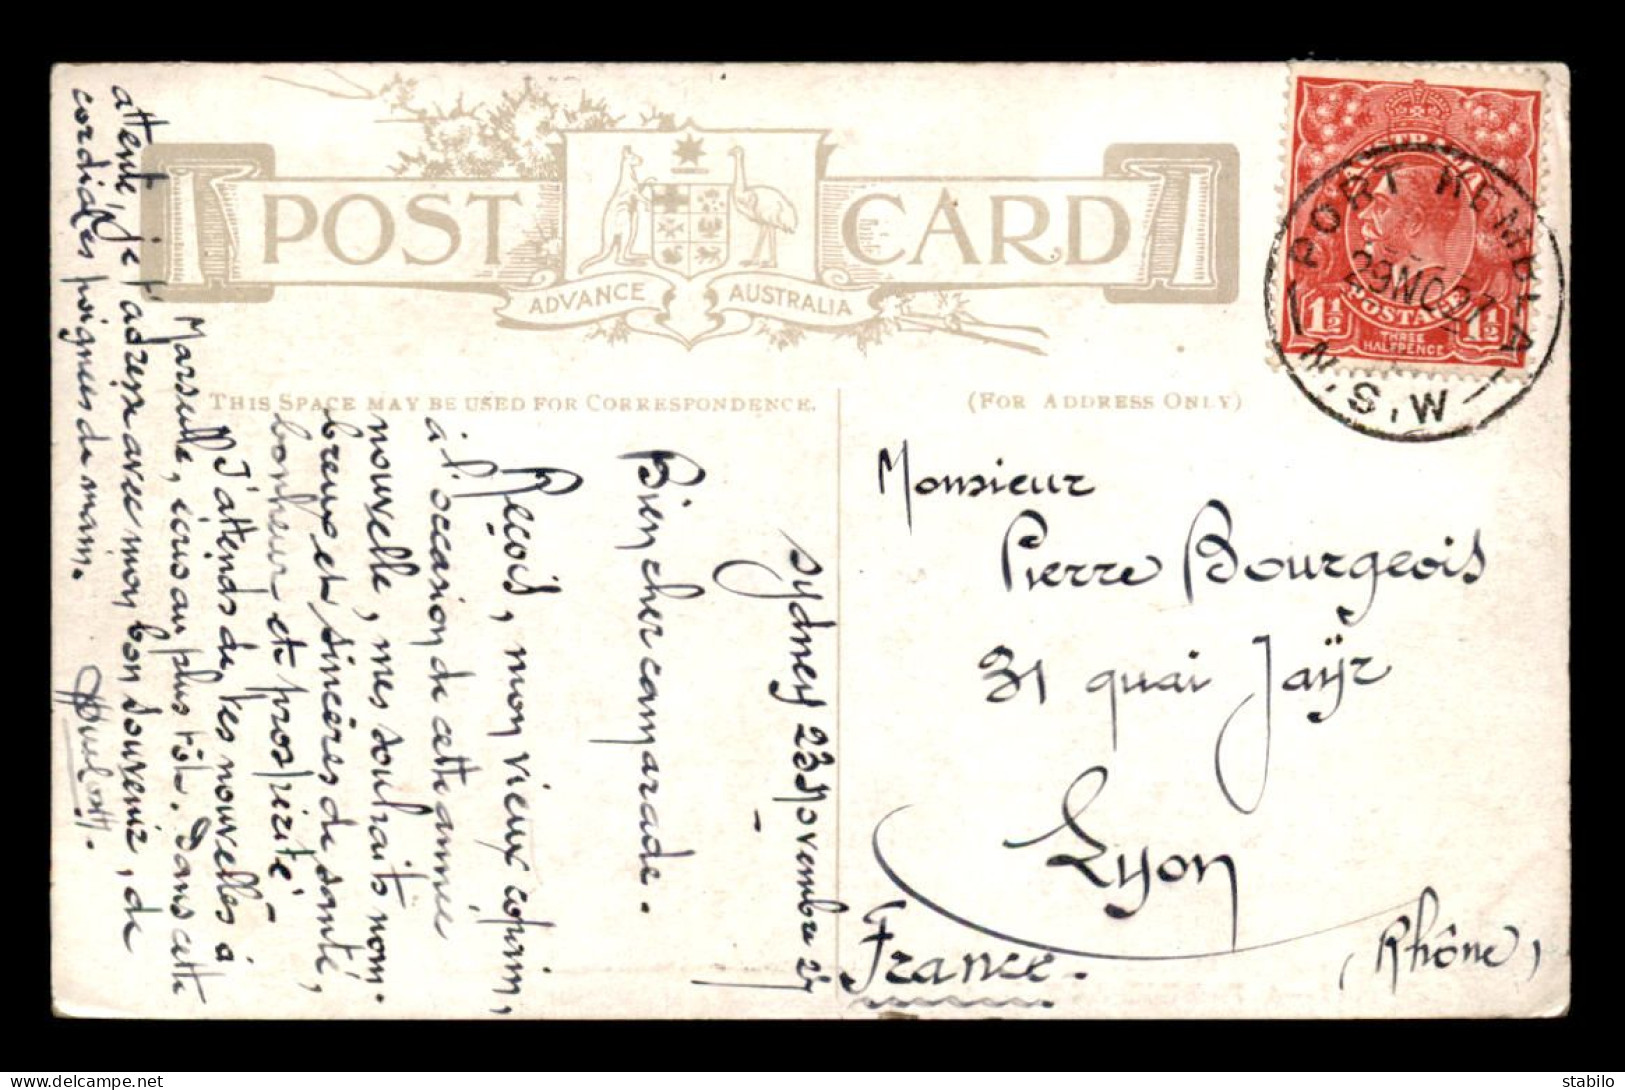 POST CARD
ADVANCE AUSTRALIA
THIS SPACE MAY BE USED FOR CORRESPONDENCE.
(FOR ADDRESS ONLY)
AUSTRALIA
POSTAGE
1½ 1½
THREE
HALFPENCE
PORT KEMBLA
29 NO 27
N.S.W
Monsieur
Pierre Bourgeois
31 quai Jaÿr
Lyon
(Rhône)
France.
Sydney 23 Novembre 27
Bien cher camarade.
Reçois, mon vieux copain,
à l'occasion de cette année
nouvelle, mes souhaits nom-
breux et sincères de santé,
bonheur et prospérité -
J'attends de tes nouvelles à
Marseille, écris au plus tôt. Dans cette
attente, je t'adresse avec mon bon souvenir, de
cordiales poignées de main.
delcampe.net
stabilo